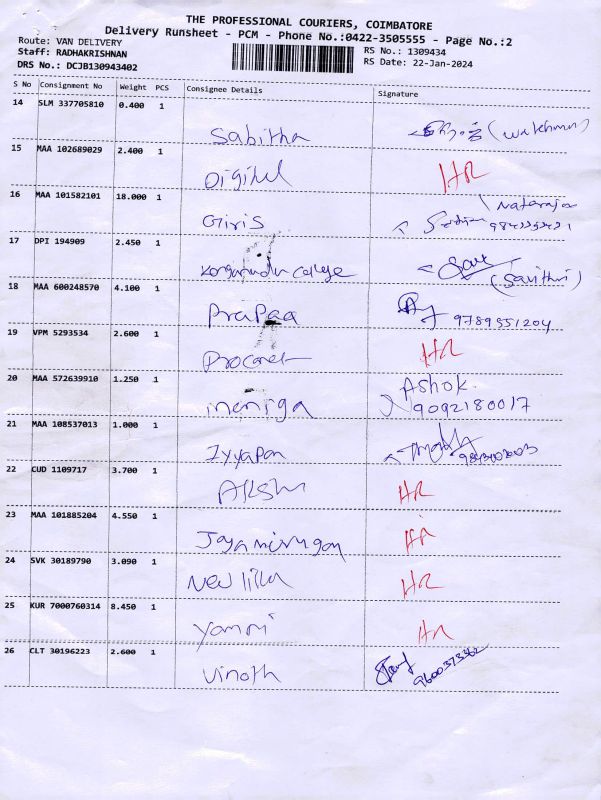 THE PROFESSIONAL COURIERS, COIMBATORE
Delivery Runsheet - PCM - Phone No.:0422-3505555 - Page No.:2
Route: VAN DELIVERY RS No.: 1309434
Staff: RADHAKRISHNAN RS Date: 22-Jan-2024
DRS No.: DCJB130943402
S No Consignment No Weight PCS Consignee Details Signature
14 SLM 337705810 0.400 1 Sabitha (watchman)
15 MAA 102689029 2.400 1 Digital HR
16 MAA 101582101 18.000 1 Giris Nataraja
17 DPI 194909 2.450 1 College (Savithri)
18 MAA 600248570 4.100 1 PraPaa 9789551204
19 VPM 5293534 2.600 1 HR
20 MAA 572639910 1.250 1 Ashok.
9092180017
21 MAA 108537013 1.000 1 Iyyapan
22 CUD 1109717 3.700 1 HR
23 MAA 101885204 4.550 1 HR
24 SVK 30189790 3.090 1 New HR
25 KUR 7000760314 8.450 1 HR
26 CLT 30196223 2.600 1 Vinoth